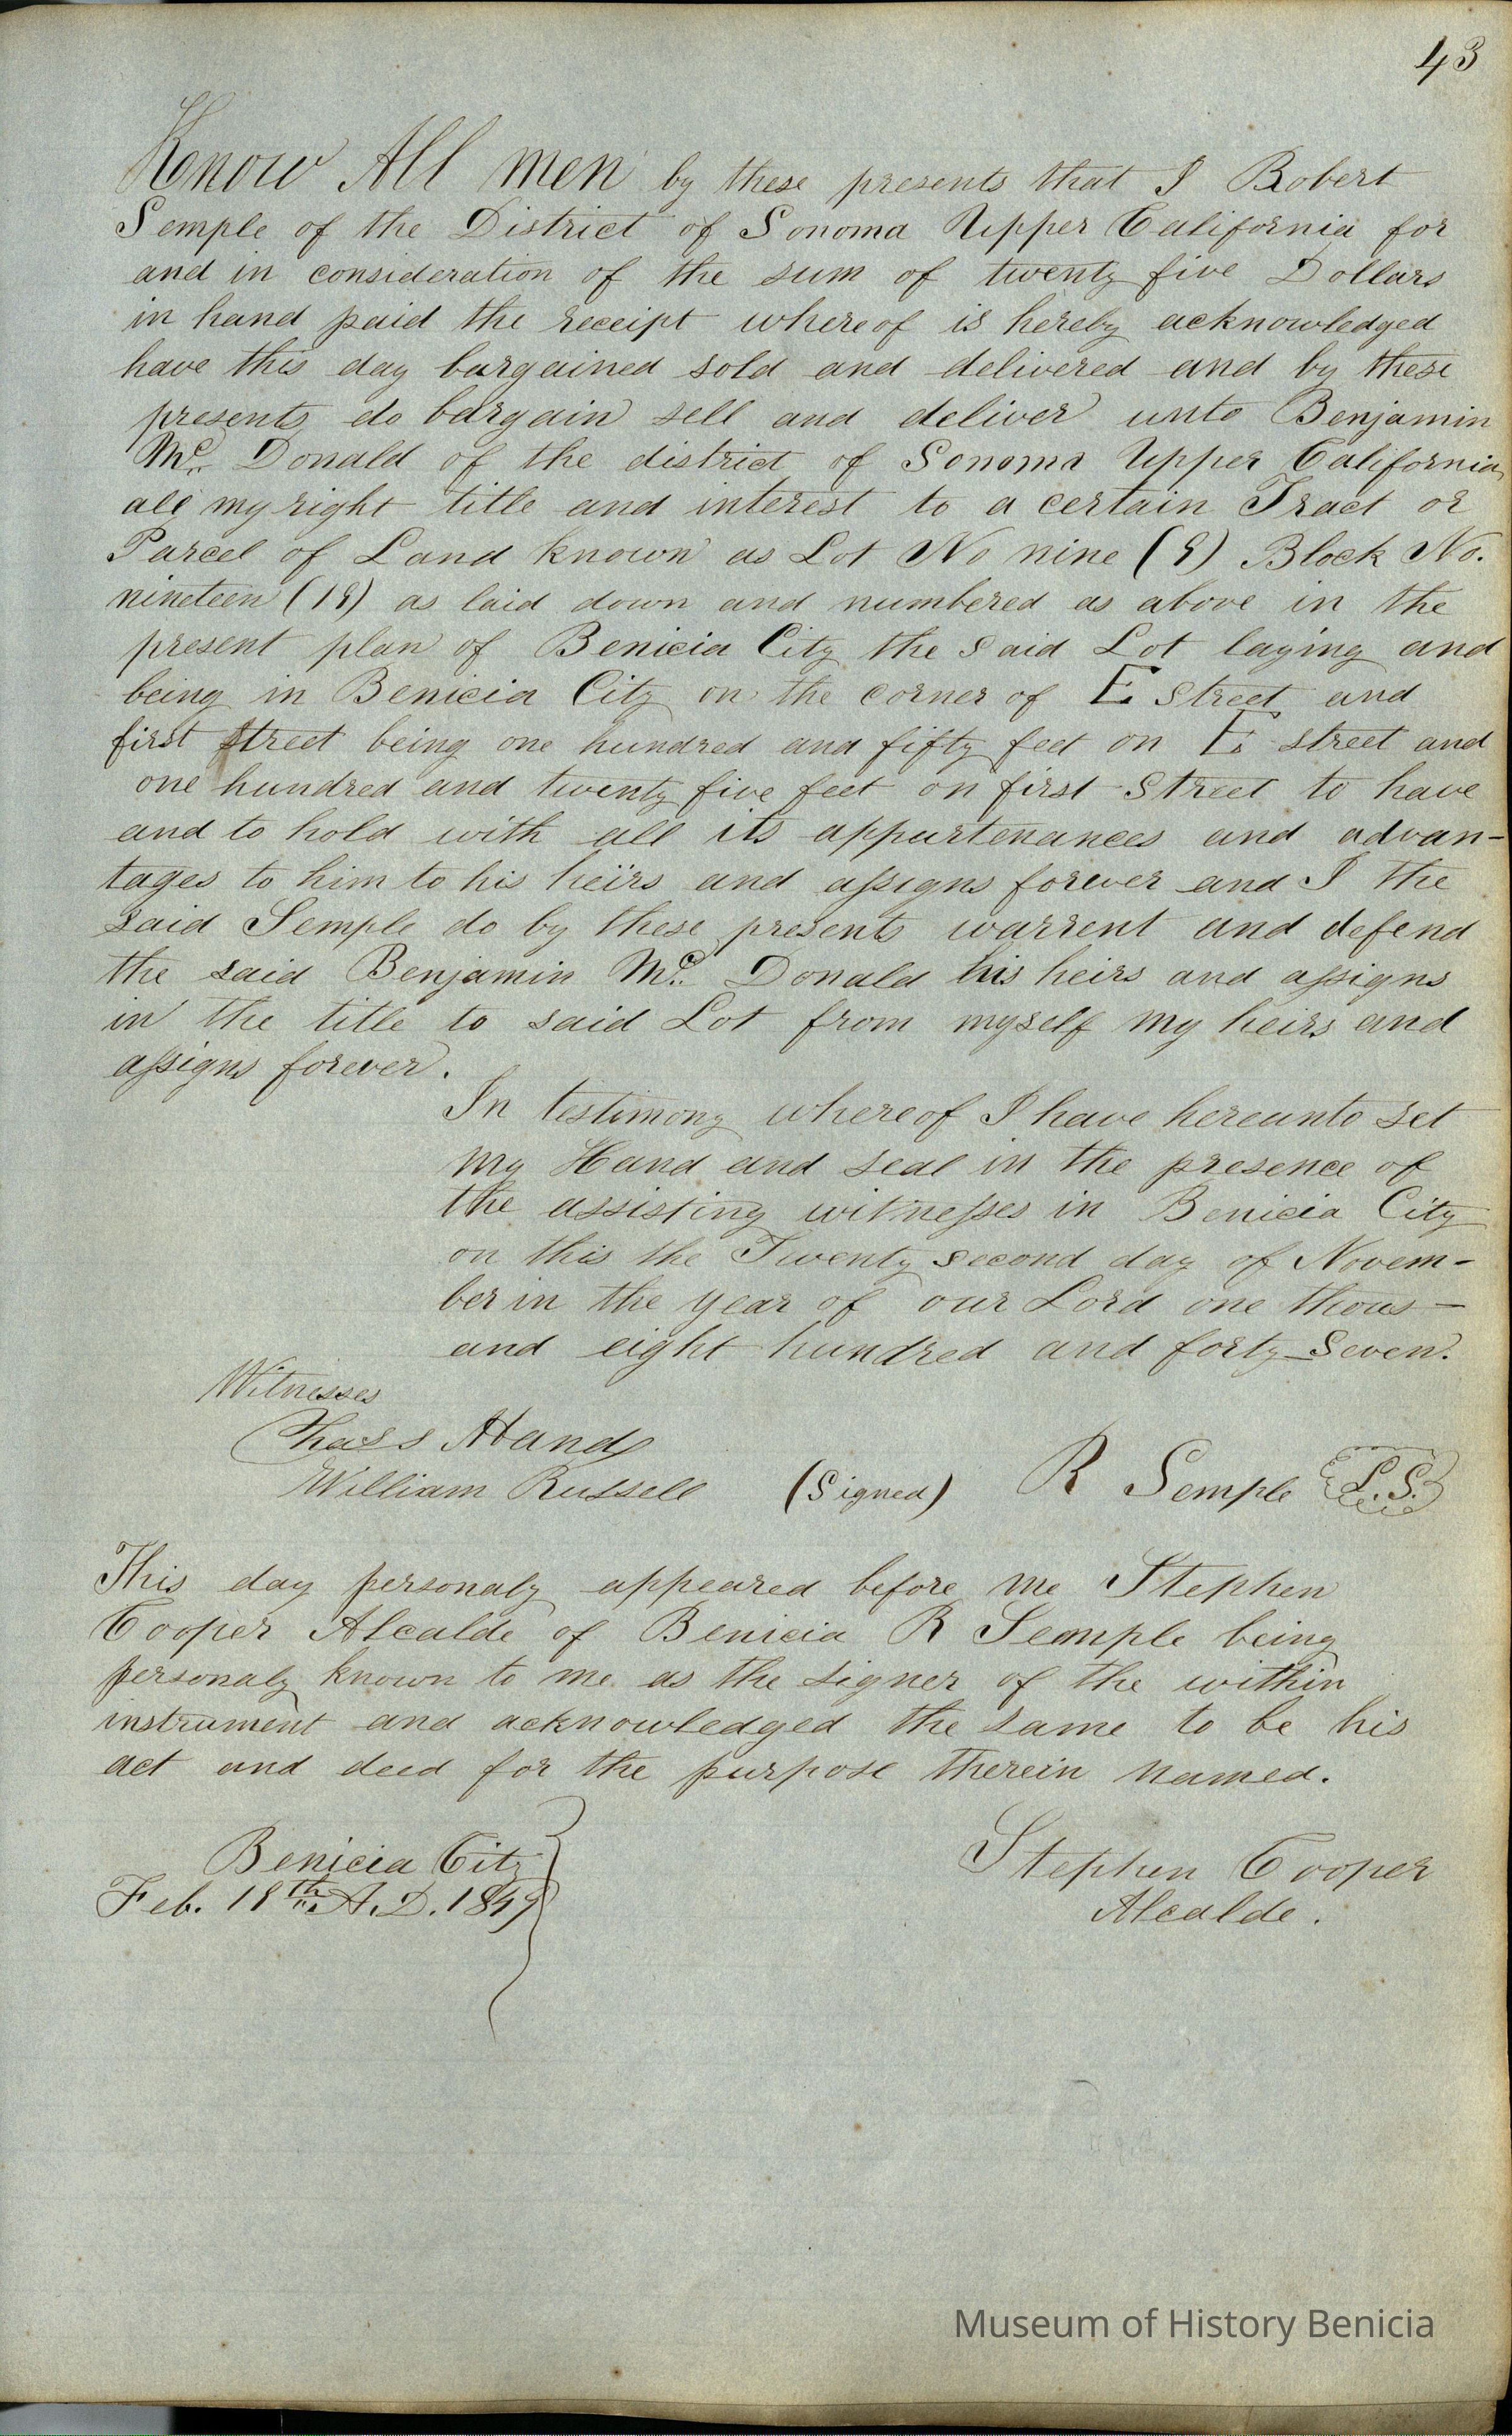 43
Know All men by these presents that I Robert
Semple of the District of Sonoma Upper California for
and in consideration of the sum of twenty five Dollars
in hand paid the receipt whereof is hereby acknowledged
have this day bargained sold and delivered and by these
presents do bargain sell and deliver unto Benjamin
Mc. Donald of the district of Sonoma Upper California
all my right title and interest to a certain Tract or
Parcel of Land known as Lot No nine (9) Block No.
nineteen (19) as laid down and numbered as above in the
present plan of Benicia City the said Lot laying and
being in Benicia City on the corner of E street and
first street being one hundred and fifty feet on E street and
one hundred and twenty five feet on first street to have
and to hold with all its appurtenances and advan-
tages to him to his heirs and assigns forever and I the
said Semple do by these presents warrent and defend
the said Benjamin Mc. Donald his heirs and assigns
in the title to said Lot from myself my heirs and
assigns forever.
In testimony whereof I have hereunto set
my Hand and seal in the presence of
the assisting witnesses in Benicia City
on this the Twenty second day of Novem-
ber in the year of our Lord one thous-
and eight hundred and forty-Seven.
Witnesses
Chass Hand
William Russell (Signed) R Semple L.S.
This day personaly appeared before me Stephen
Cooper Alcalde of Benicia R Semple being
personaly known to me as the signer of the within
instrument and acknowledged the same to be his
act and deed for the purpose therein named.
Benicia City
Feb. 18th A.D. 1849
Stephen Cooper
Alcalde.
Museum of History Benicia